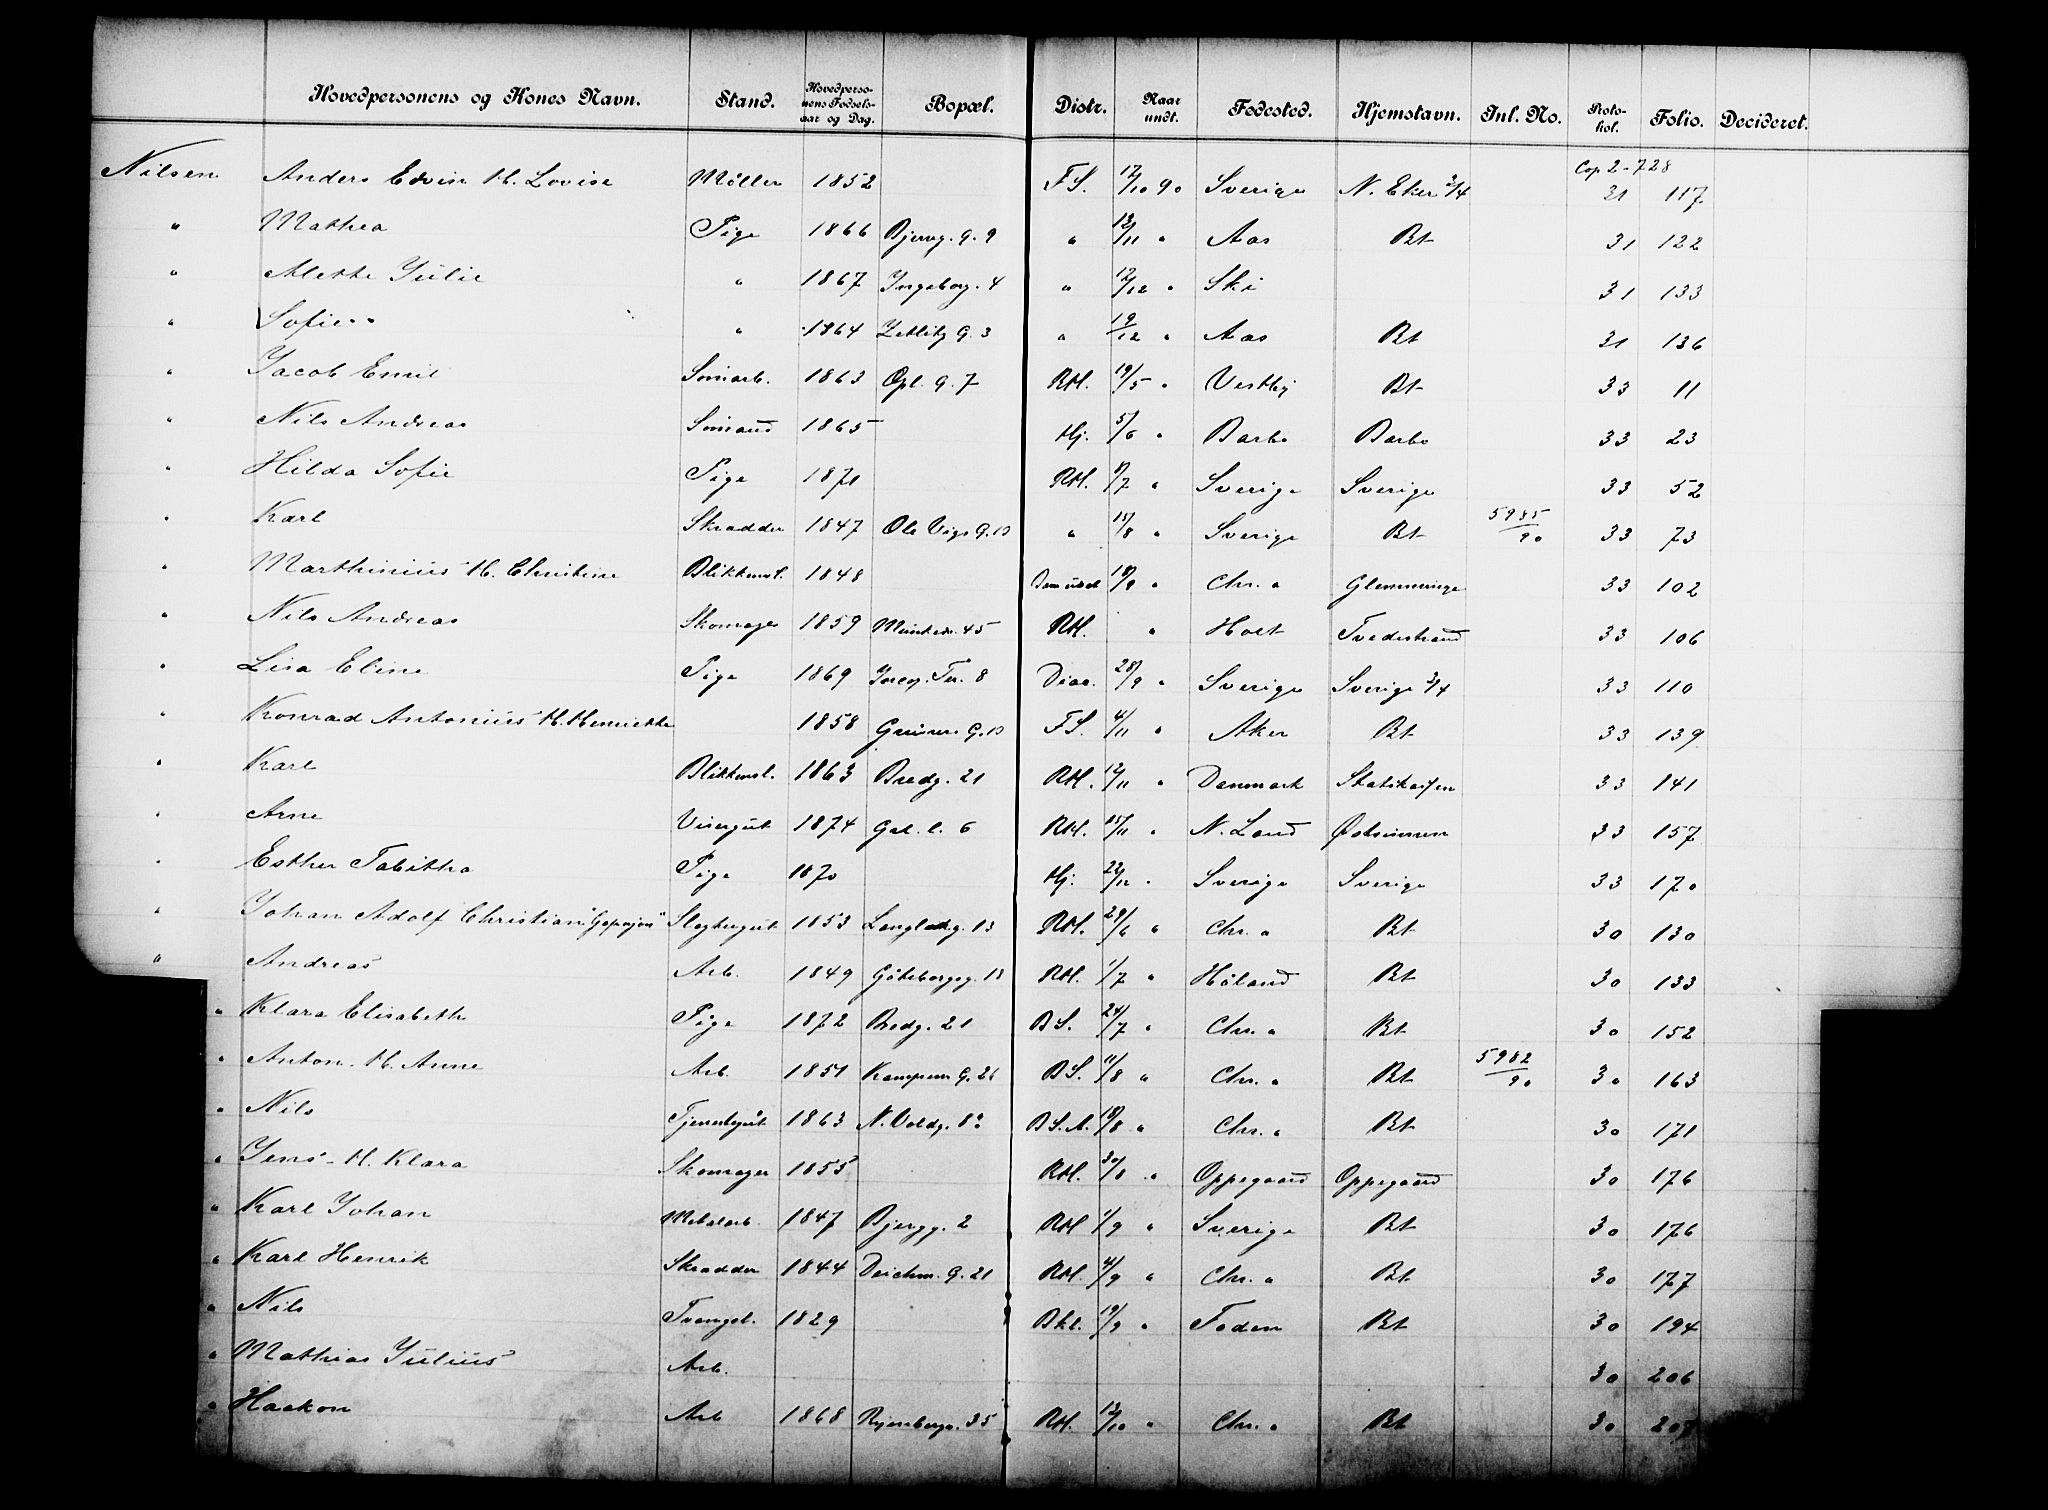 Hovedpersonens og Kones Navn. Stand. Hovedperso-nens Fødsels-aar og Dag. Bopæl. Distr. Naar undt. Fødested. Hjemstavn. Inl. No. Proto-kol. Folio. Decideret.
Nilsen Anders Edvin H. Lovise Møller 1852 F S. 17/10 90 Sverige N. Eker 3/4 Cop 2-728 31 117
" Mathea Pige 1866 Bjerreg. 9 " 13/11 " Aas Bt 31 122
" Alette Julie " 1867 Ingeborg. 4 " 12/12 " Ski 31 133
" Sofie " 1864 Zetlitz G. 3 " 19/12 " Aas Bt 31 136
" Jacob Emil Smiarb. 1863 Opl. G. 7 RH. 19/5 " Vestby Bt 33 11
" Nils Andreas Sømand 1865 Hj. 5/6 " Barbo Barbo 33 23
" Hilda Sofie Pige 1871 RH. /7 " Sverige Sverige 33 52
" Karl Skrædder 1847 Ole Vigs G. 10 " 15/8 " Sverige Bt 5985/90 33 73
" Marthinius H. Christine Blikkensl. 1848 18/9 " Chr. a Glemminge 33 102
" Nils Andreas Skomager 1859 Munkedv. 45 RH. " Holt Tvedestrand 33 106
" Lisa Eline Pige 1869 Ter. 8 Diac. 28/9 " Sverige Sverige 3/4 33 110
" Konrad Antonius H. Henriette 1858 Grüners G. 10 F S. 4/11 " Aker Bt 33 139
" Karl Blikkensl. 1863 Bredg. 21 RH. 12/11 " Danmark Statskassen 33 141
" Arne Visergut 1874 Gal. l. 6 RH. 15/11 " N. Land Østsinnen 33 157
" Esther Tabitha Pige 1870 Hj. 22/12 " Sverige Sverige 33 170
" Johan Adolf Christian Slagtergut 1853 Langleikg. 13 RH. 29/6 " Chr. a Bt 30 130
" Andreas Arb. 1849 Göteborgsg. 18 RH. 1/7 " Høland Bt 30 133
" Klara Elisabeth Pige 1872 Bredg. 21 B S. 24/7 " Chr. a Bt 30 152
" Anton. H. Anne Arb. 1851 Kampens G. 26 B S. 11/8 " Chr. a Bt 5982/90 30 163
" Nils Tjenestegut 1863 N. Voldg. 8 B S. A. 18/8 " Chr. a Bt 30 171
" Jens - H. Klara Skomager 1855 RH. 30/8 " Oppegaard Oppegaard 30 176
" Karl Johan Metalarb. 1847 Bjergg. 2 RH 1/9 " Sverige Bt 30 176
" Karl Henrik Skrædder 1844 Deichm. G. 21 RH. 4/9 " Chr. a Bt 30 177
" Nils Tvangsl. 1829 Bkl. 19/9 " Foden Bt 30 194
" Mathias Julius Arb. 30 206
" Haakon Arb 1868 Rypebergv. 35 RH. 13/10 " Chr. a Bt 30 207